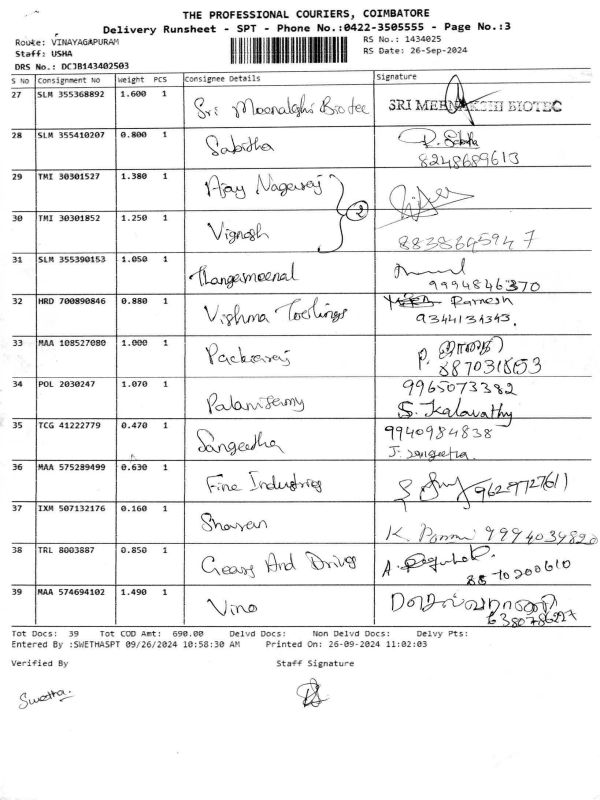 THE PROFESSIONAL COURIERS, COIMBATORE
Delivery Runsheet - SPT - Phone No.:0422-3505555 - Page No.:3
Route: VINAYAGAPURAM
RS No.: 1434025
Staff: USHA
RS Date: 26-Sep-2024
DRS No.: DCJB143402503
S No Consignment No Weight PCS Consignee Details Signature
27 SLM 355368892 1.600 1 Sri Meenakshi Biotec SRI MEENAKSHI BIOTEC
28 SLM 355410207 0.800 1 Sabitha R. Sabitha
8248689613
29 TMI 30301527 1.380 1 Ajay Nagaraj
2
30 TMI 30301852 1.250 1 Vignesh 8838645947
31 SLM 355390153 1.050 1 Thangameenal
9994846370
32 HRD 700890846 0.880 1 Vishma Toolings Ramesh
9344134343.
33 MAA 108527080 1.000 1 Packiaraj P.
34 POL 2030247 1.070 1 Palanisamy 9965073382
S. Kalavathy
35 TCG 41222779 0.470 1 Sangeetha 9940984838
J. Sangeetha.
36 MAA 575289499 0.630 1 Fine Industries
37 IXM 507132176 0.160 1 Sharan K. 9994034820
38 TRL 8003887 0.850 1 Gears And Drives A.
8870200610
39 MAA 574694102 1.490 1 Vino
6380786227
Tot Docs: 39 Tot COD Amt: 690.00 Delvd Docs: Non Delvd Docs: Delvy Pts:
Entered By :SWETHASPT 09/26/2024 10:58:30 AM Printed On: 26-09-2024 11:02:03
Verified By Staff Signature
Swetha.